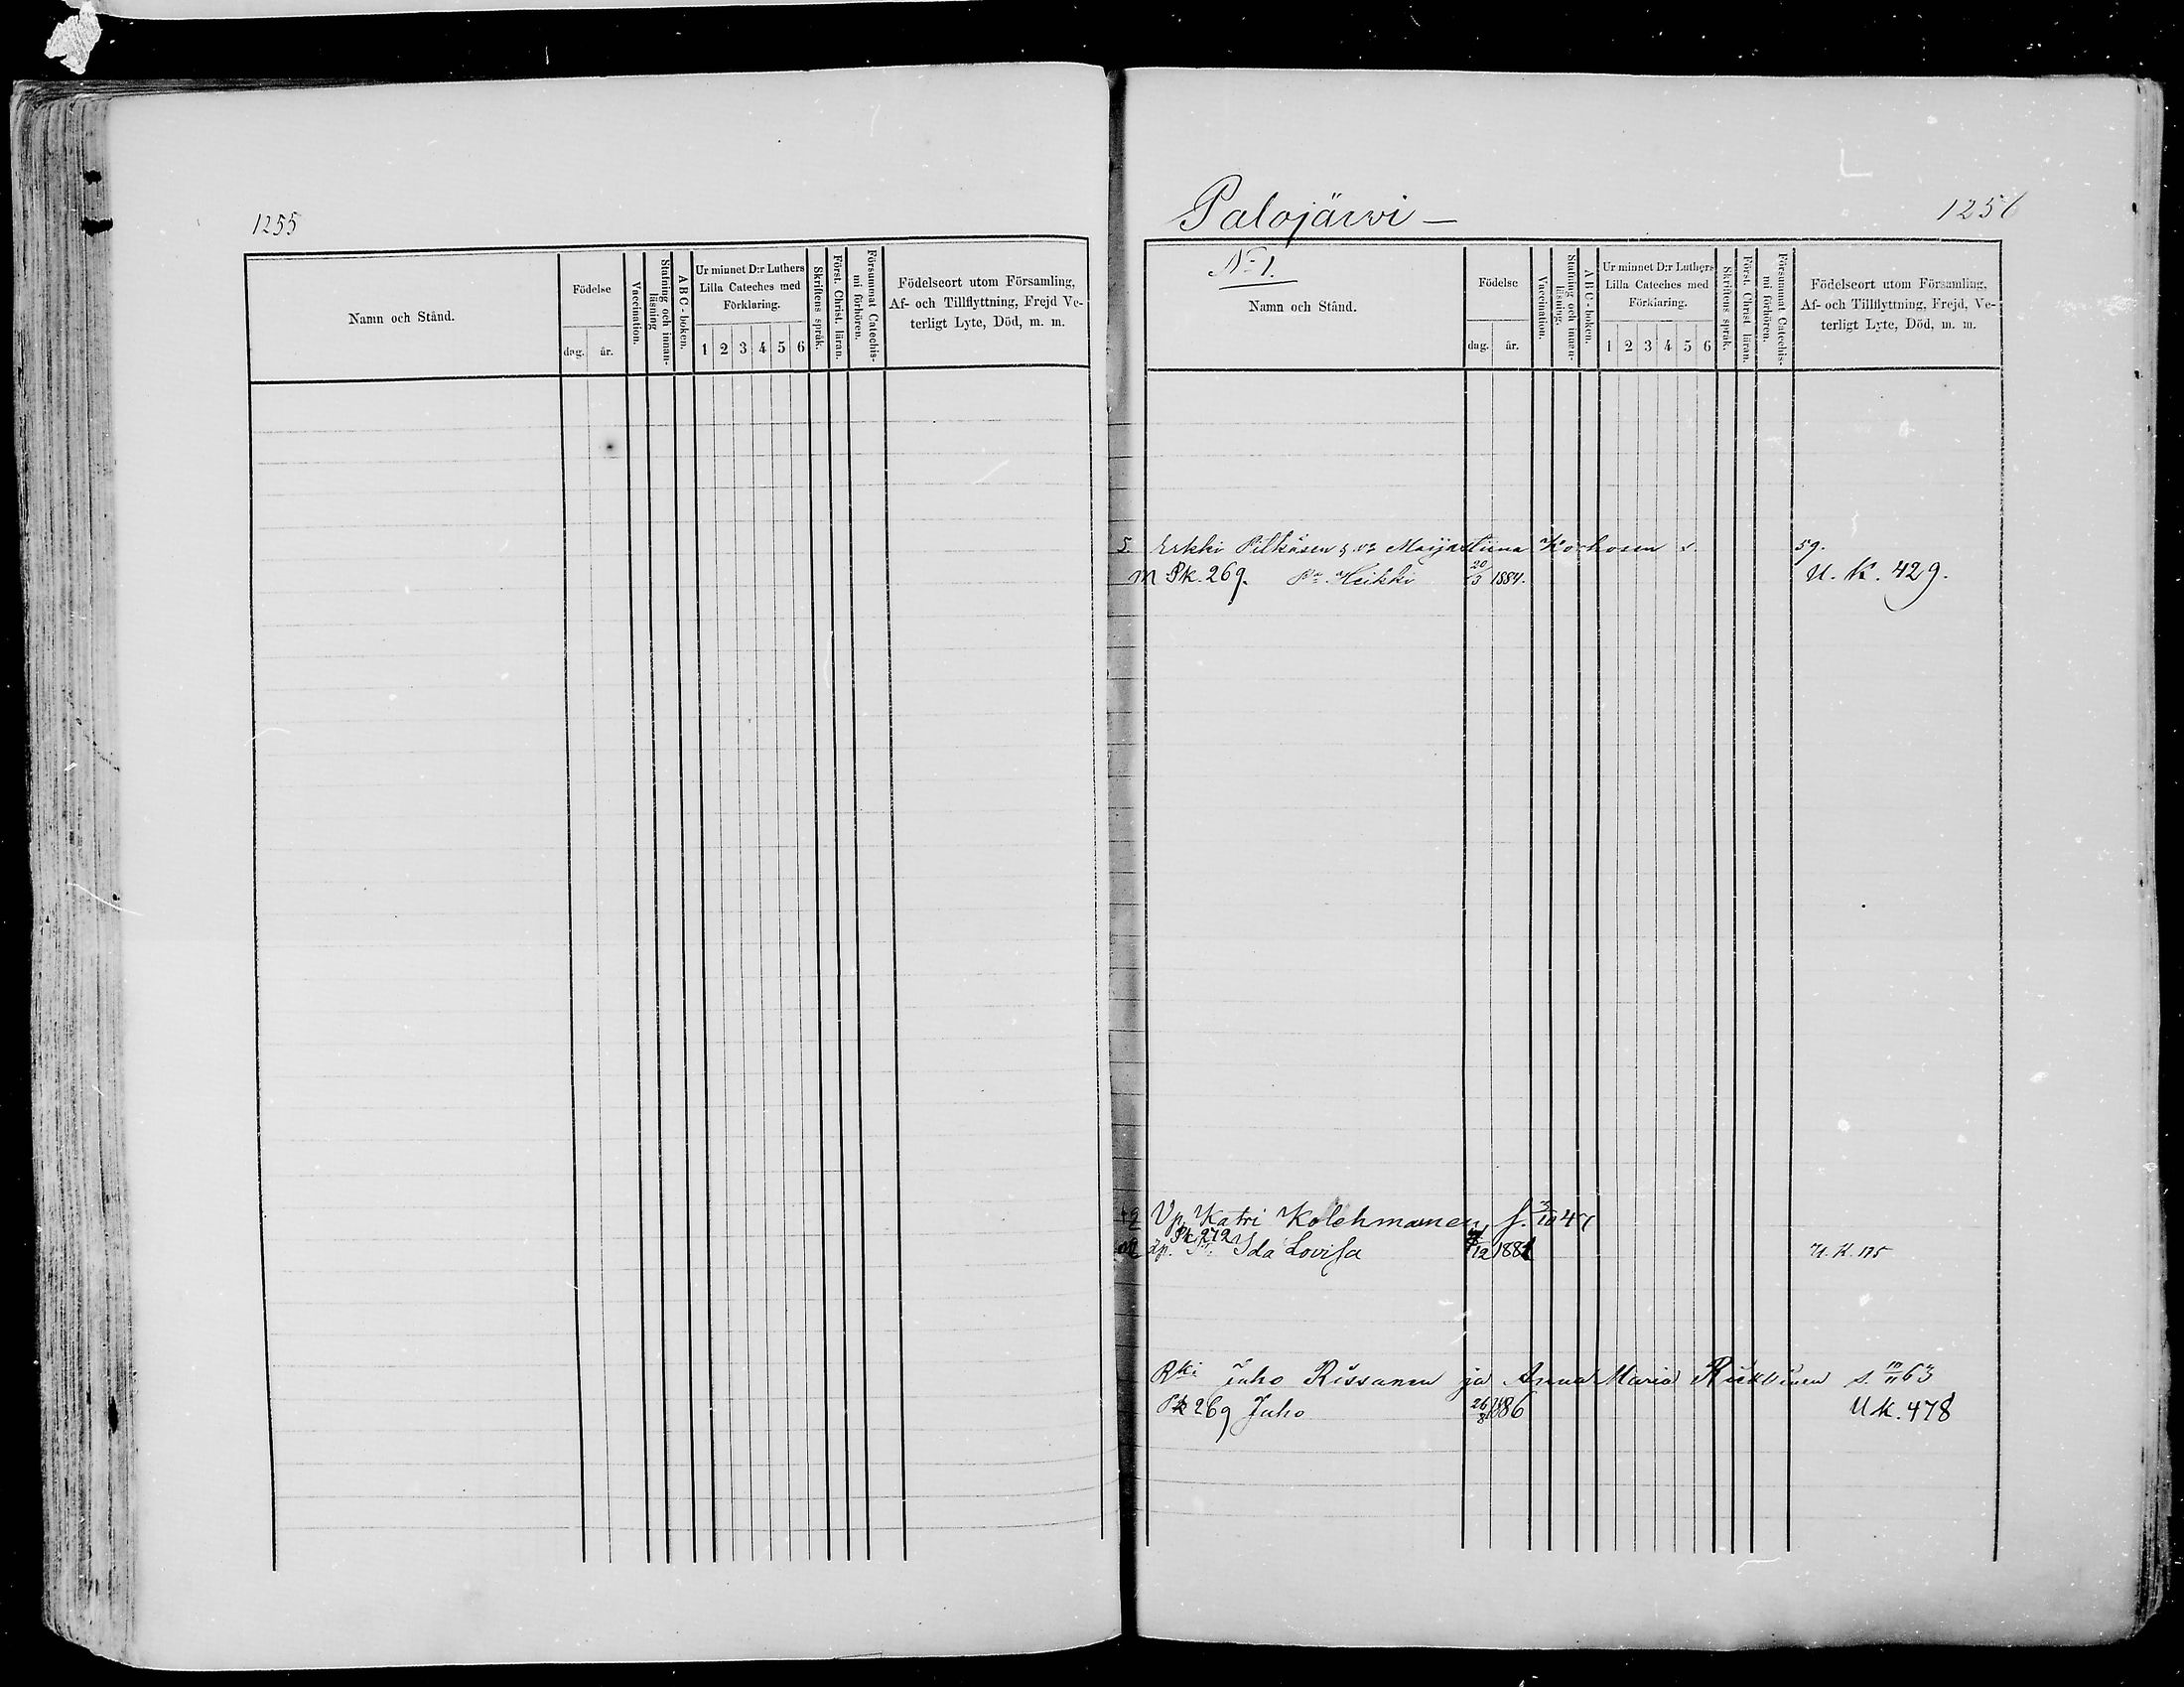 1255
Namn och Stånd.
Födelse
dag. år.
Vaccination.
Stafning och innan-
läsning
ABC-boken.
Ur minnet D:r Luthers
Lilla Cateches med
Förklaring.
1 2 3 4 5 6
Skriftens språk.
Först. Christ. läran.
Försummat Catechis-
mi förhören.
Födelseort utom Församling,
Af- och Tillflyttning, Frejd Ve-
terligt Lyte, Död, m. m.
Palojärwi —
1256
No 1.
Namn och Stånd.
Födelse
dag. år.
Vaccination.
Stafning och innan-
läsning.
ABC-boken.
Ur minnet D:r Luthers
Lilla Cateches med
Förklaring.
1 2 3 4 5 6
Skriftens språk.
Först. Christ läran.
Försummat Catechis-
mi förhören.
Födelseort utom Församling,
Af- och Tillflyttning, Frejd, Ve-
terligt Lyte, Död, m. m.
5. Erkki Pitkäsen Maija Stiina Korhosen s. 59.
m Pk. 269. Heikki 20/3 1884. U. K. 429.
Katri Kolehmainen f. /10 47
Pk 272
Ida Lovisa /12 1881 U. K. 175
Rki Juho Rissanen ja Anna Maria s. 63
Pk 269 Juho 26/8 1886 U K. 478